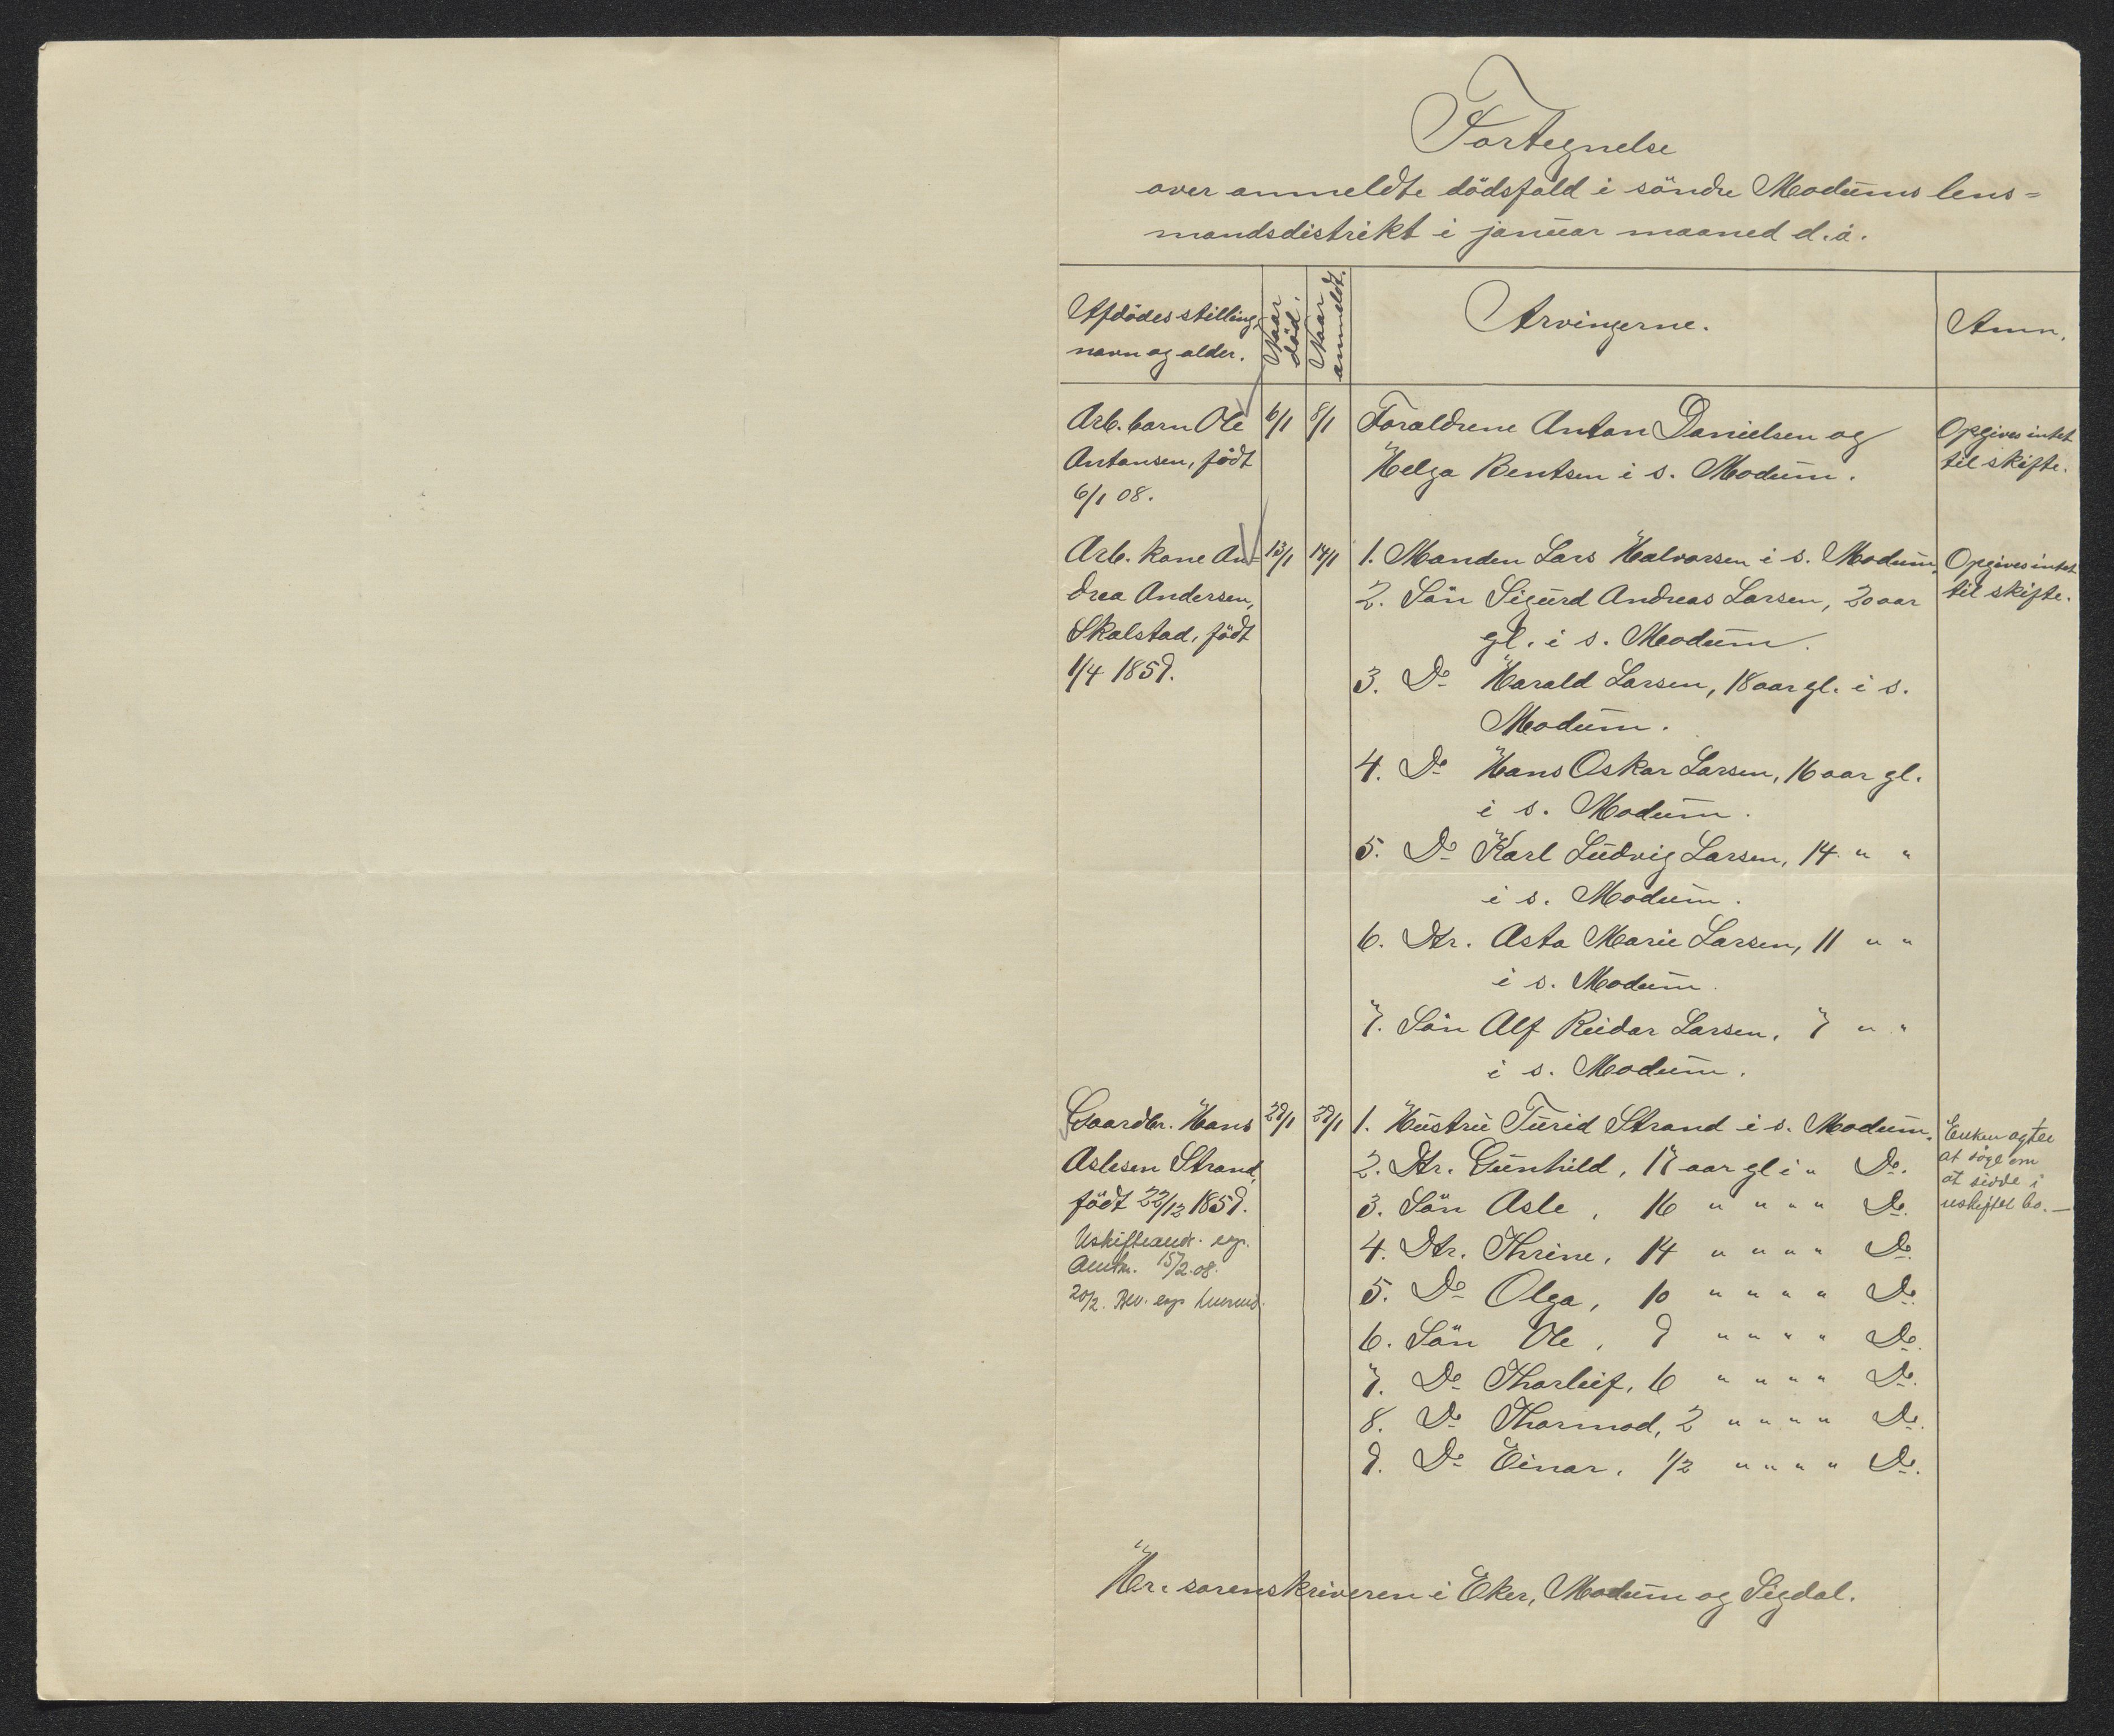 Fortegnelse
over anmeldte dödsfald i söndre Modums lens=
mandsdistrikt i januar maaned d. å.
Afdödes stilling,
navn og alder.
Naar
död.
Naar
anmeldt.
Arvingerne.
Anm.
Arb. barn Ole
Antonsen, födt
6/1 08.
6/1
8/1
Foraldrene Anton Danielsen og
Helga Bentsen i s. Modum.
Opgives intet
til skifte.
Arb. kone An-
drea Andersen,
Skalstad, födt
1/4 1859.
13/1
14/1
1. Manden Lars Halvorsen i s. Modum.
2. Sön Sigurd Andreas Larsen, 20 aar
gl. i s. Modum.
3. Do Harald Larsen, 18 aar gl. i s.
Modum.
4. Do Hans Oskar Larsen, 16 aar gl.
i s. Modum.
5. Do Karl Ludvig Larsen, 14 " "
i s. Modum.
6. Dtr. Asta Marie Larsen, 11 " "
i s. Modum.
7. Sön Alf Reidar Larsen, 7 " "
i s. Modum.
Opgives intet
til skifte.
Gaardbr. Hans
Aslesen Strand,
födt 22/12 1859.
Uskifteandr. exp.
Amtm. 15/2.08.
20/2. exp
29/1
29/1
1. Hustru Turid Strand i s. Modum.
2. Dtr. Gunhild, 17 aar gl i " Do.
3. Sön Asle, 16 " " " " Do.
4. Dtr. Thrine, 14 " " " " Do
5. Do Olga, 10 " " " " Do
6. Sön Ole, 9 " " " " Do.
7. Do Thorleif, 6 " " " " Do.
8. Do Thormod, 2 " " " " Do.
9. Do Einar, 1/2 " " " " Do.
Enken agter
at söge om
at sidde i
uskiftet bo. —
Hr. sorenskriveren i Eker, Modum og Sigdal.